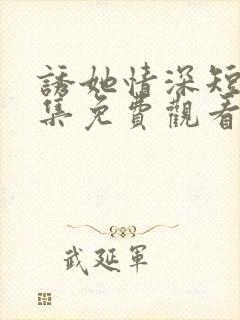 誘她情深短
集免費觀看
武延軍